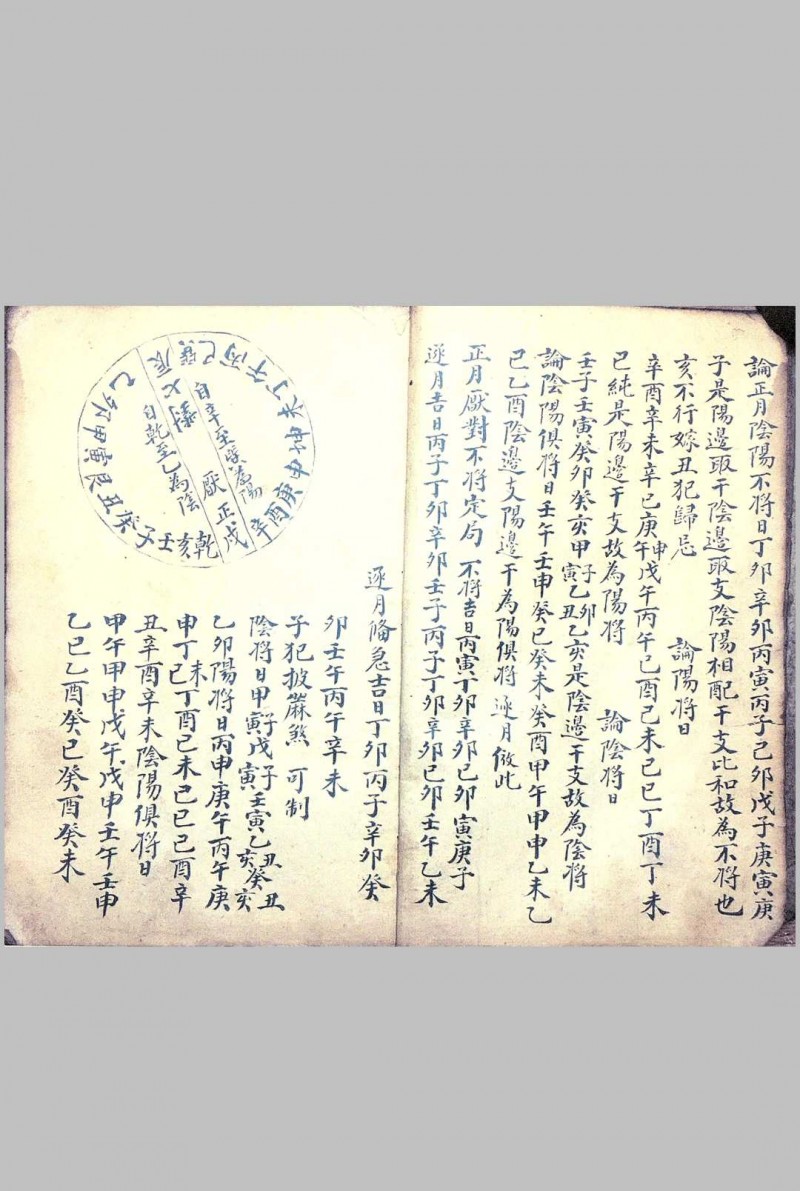 論正月陰陽不將日丁卯辛卯丙寅丙子己卯戊子庚寅庚
子是陽邊取干陰邊取支陰陽相配干支比和故為不將也
亥不行嫁丑犯歸忌
論陽將日
辛酉辛未辛巳庚申午戊午丙午己酉己未己巳丁酉丁未
巳純是陽邊干支故為陽將
論陰將日
壬子壬寅癸卯癸亥甲子寅乙卯丑乙亥是陰邊干支故為陰將
論陰陽俱將日壬午壬申癸巳癸未癸酉甲午甲申乙未乙
巳乙酉陰邊支陽邊干為陽俱將 逐月倣此
正月厭對不將定局 不將吉日丙寅丁卯辛卯己卯寅庚子
逐月吉日丙子丁卯辛卯壬子丙子丁卯辛卯己卯壬午乙未
逐月脩急吉日丁卯丙子辛卯癸
卯壬午丙午辛未
子犯披蔴煞 可制
陰將日甲寅子戊子寅壬寅乙丑亥癸丑亥
乙卯陽將日丙申庚午丙午庚
申丁未巳丁酉己未己巳己酉辛
丑辛酉辛未陰陽俱將日
甲午甲申戊午戊申壬午壬申
乙巳乙酉癸巳癸酉癸未
乾亥壬子癸丑艮寅甲卯乙
辰巽巳丙午丁未坤申庚酉辛
戌
正厭
七
自辛至巽為陽
自乾至乙為陰